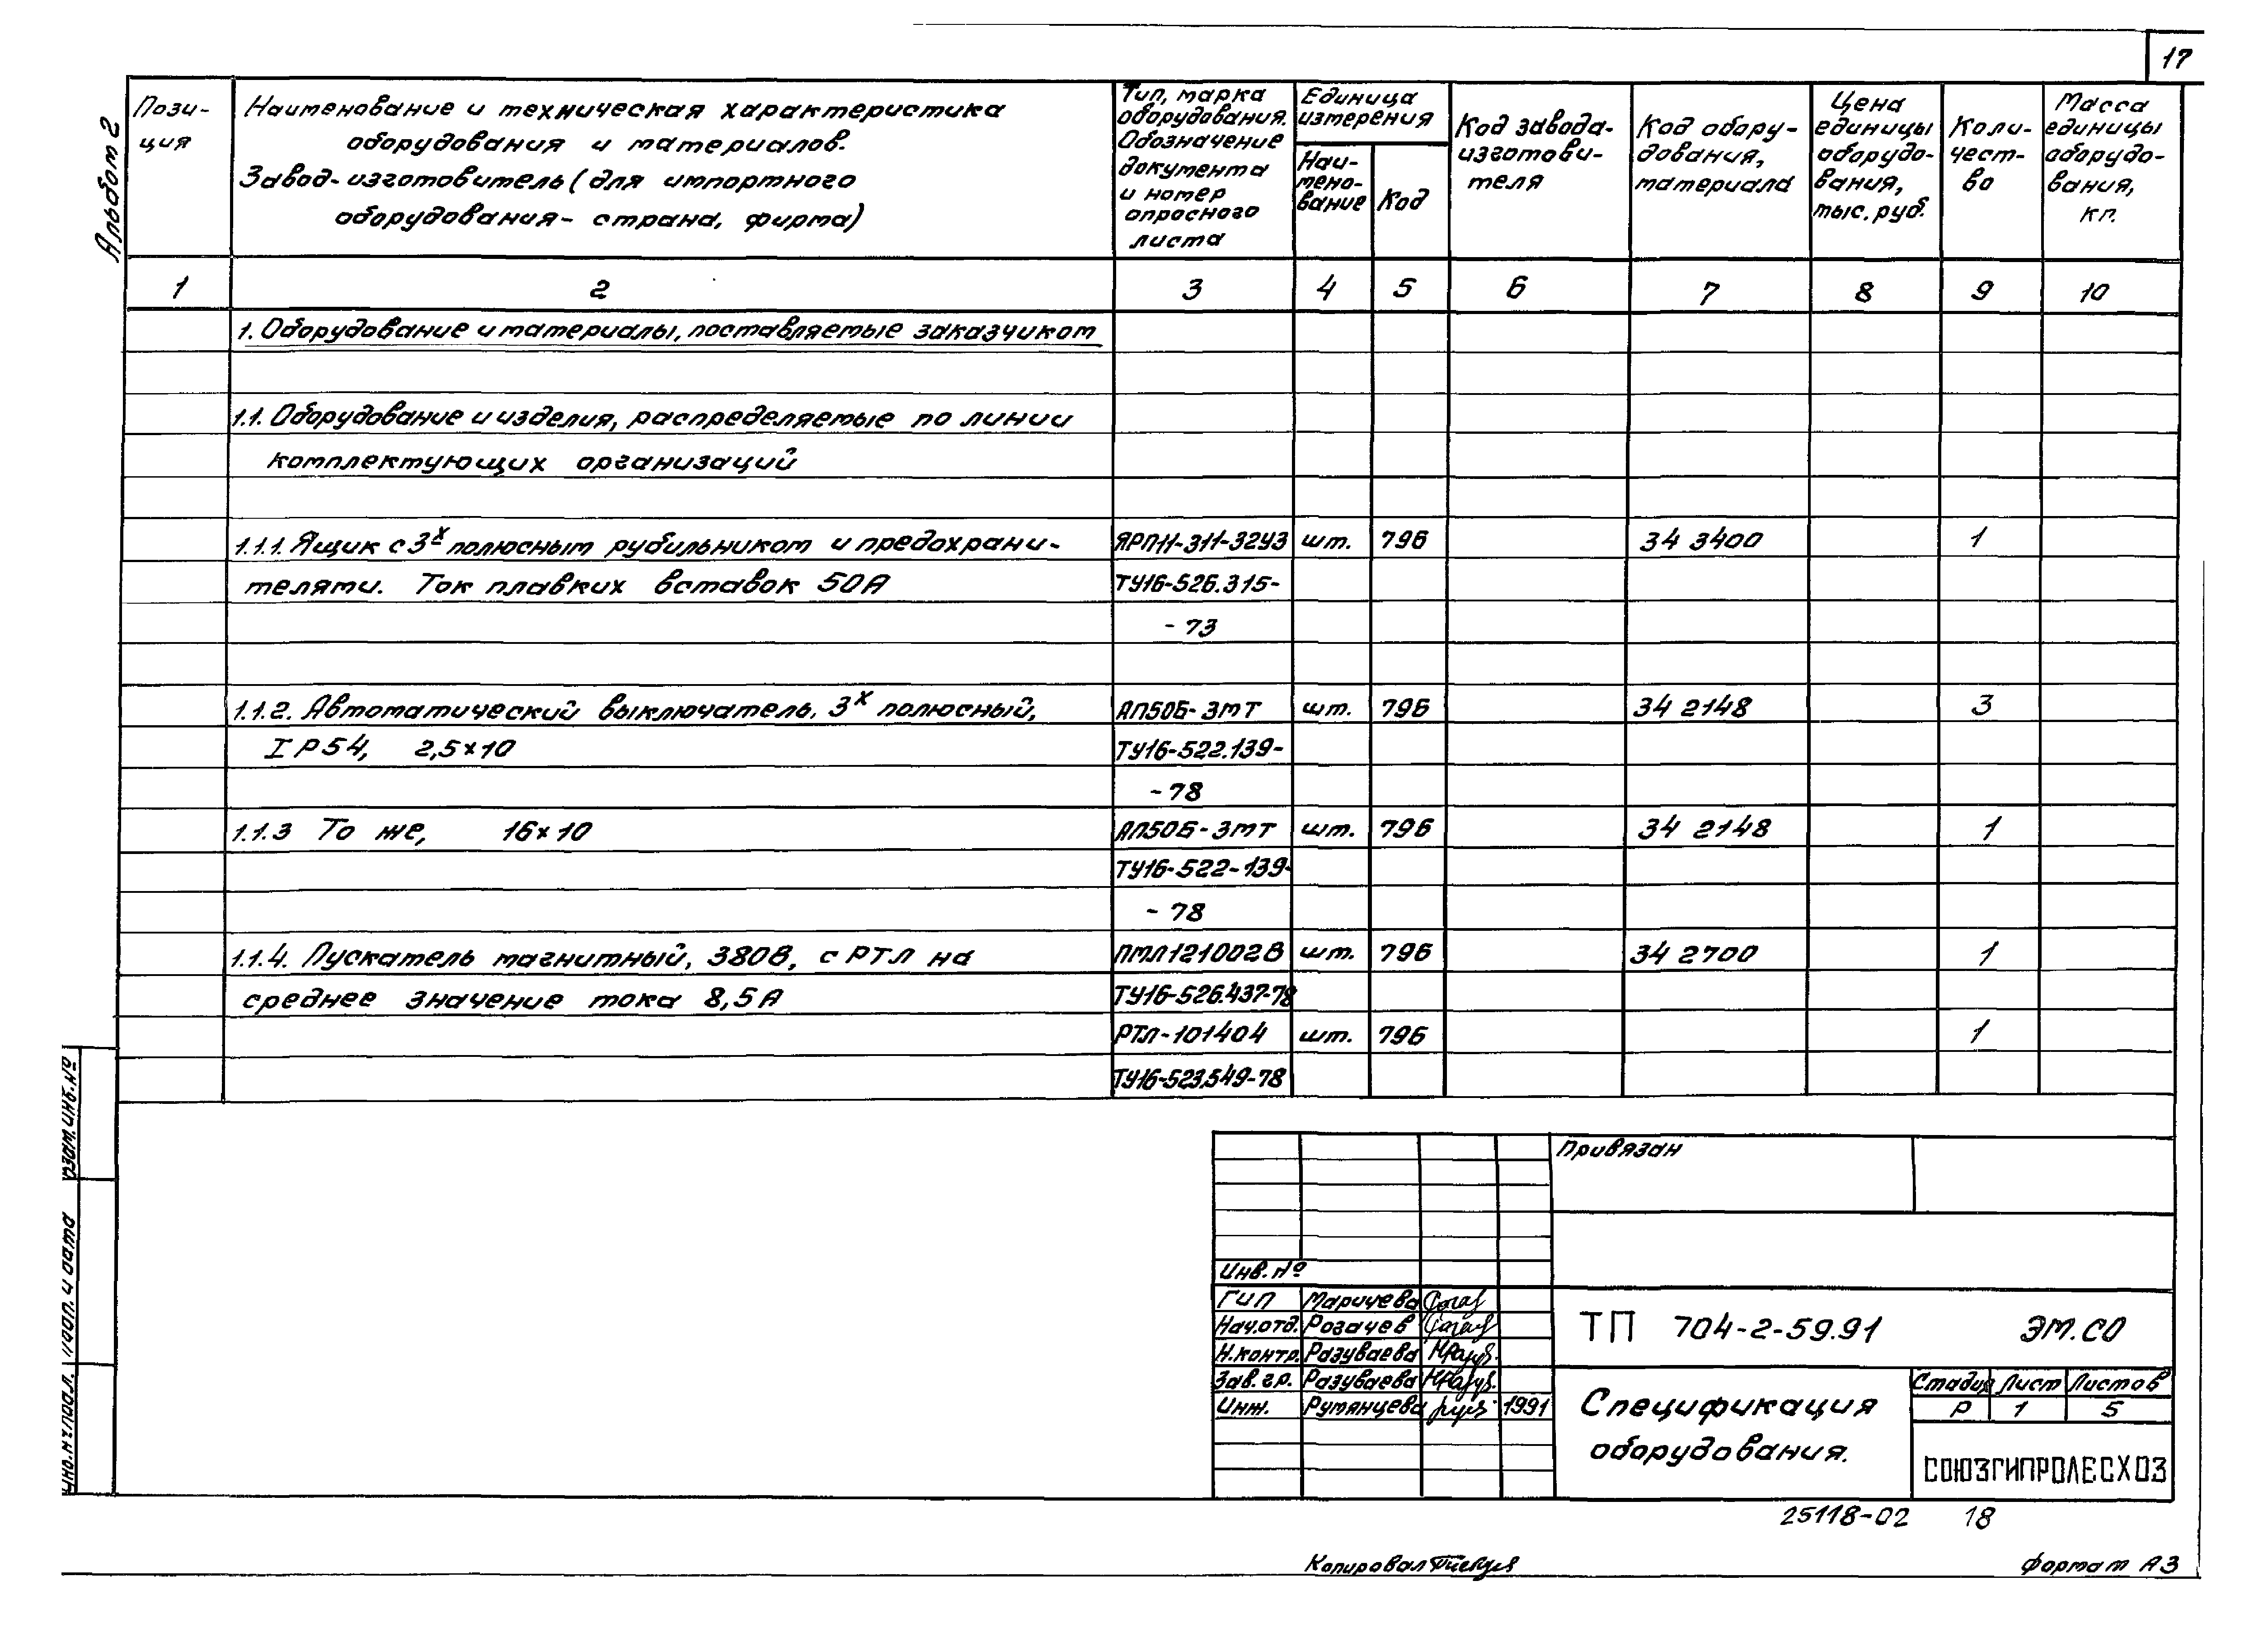 17
Альбом 2
Пози-
ция
Наименование и техническая характеристика
оборудования и материалов.
Завод-изготовитель (для импортного
оборудования- страна, фирма)
Тип, марка
оборудования.
Обозначение
документа
и номер
опросного
листа
Единица
измерения
Наи-
мено-
вание
Код
Код завода-
изготови-
теля
Код обору-
дования,
материала
Цена
единицы
оборудо-
вания,
тыс. руб.
Коли-
чест-
во
Масса
единицы
оборудо-
вания,
кг.
1 2 3 4 5 6 7 8 9 10
1. Оборудование и материалы, поставляемые заказчиком
1.1. Оборудование и изделия, распределяемые по линии
комплектующих организаций
1.1.1 Ящик с 3х полюсным рубильником и предохрани- ЯРП11-311-32У3 шт. 796 34 3400 1
телями. Ток плавких вставок 50А ТУ16-526.315-
- 73
1.1.2. Автоматический выключатель. 3х полюсный, АП50Б-3МТ шт. 796 34 2148 3
IP54, 2,5×10 ТУ16-522.139-
- 78
1.1.3 То же, 16×10 АП50Б-3МТ шт. 796 34 2148 1
ТУ16-522-139-
- 78
1.1.4. Пускатель магнитный, 380В, с РТЛ на ПМЛ121002В шт. 796 34 2700 1
среднее значение тока 8,5А ТУ16-526.437-78
РТЛ-101404 шт. 796 1
ТУ16-523.549-78
Взам. инв. №
Подп. и дата
Инв. № подл.
Привязан
Инв. №
ГИП Маричева
Нач.отд. Розачев
Н.контр. Разуваева
Зав. гр. Разуваева
Инж. Румянцева 1991
ТП 704-2-59.91 ЭМ.СО
Спецификация
оборудования.
Стадия Лист Листов
Р 1 5
СОЮЗГИПРОЛЕСХОЗ
25118-02 18
Копировал
Формат А3